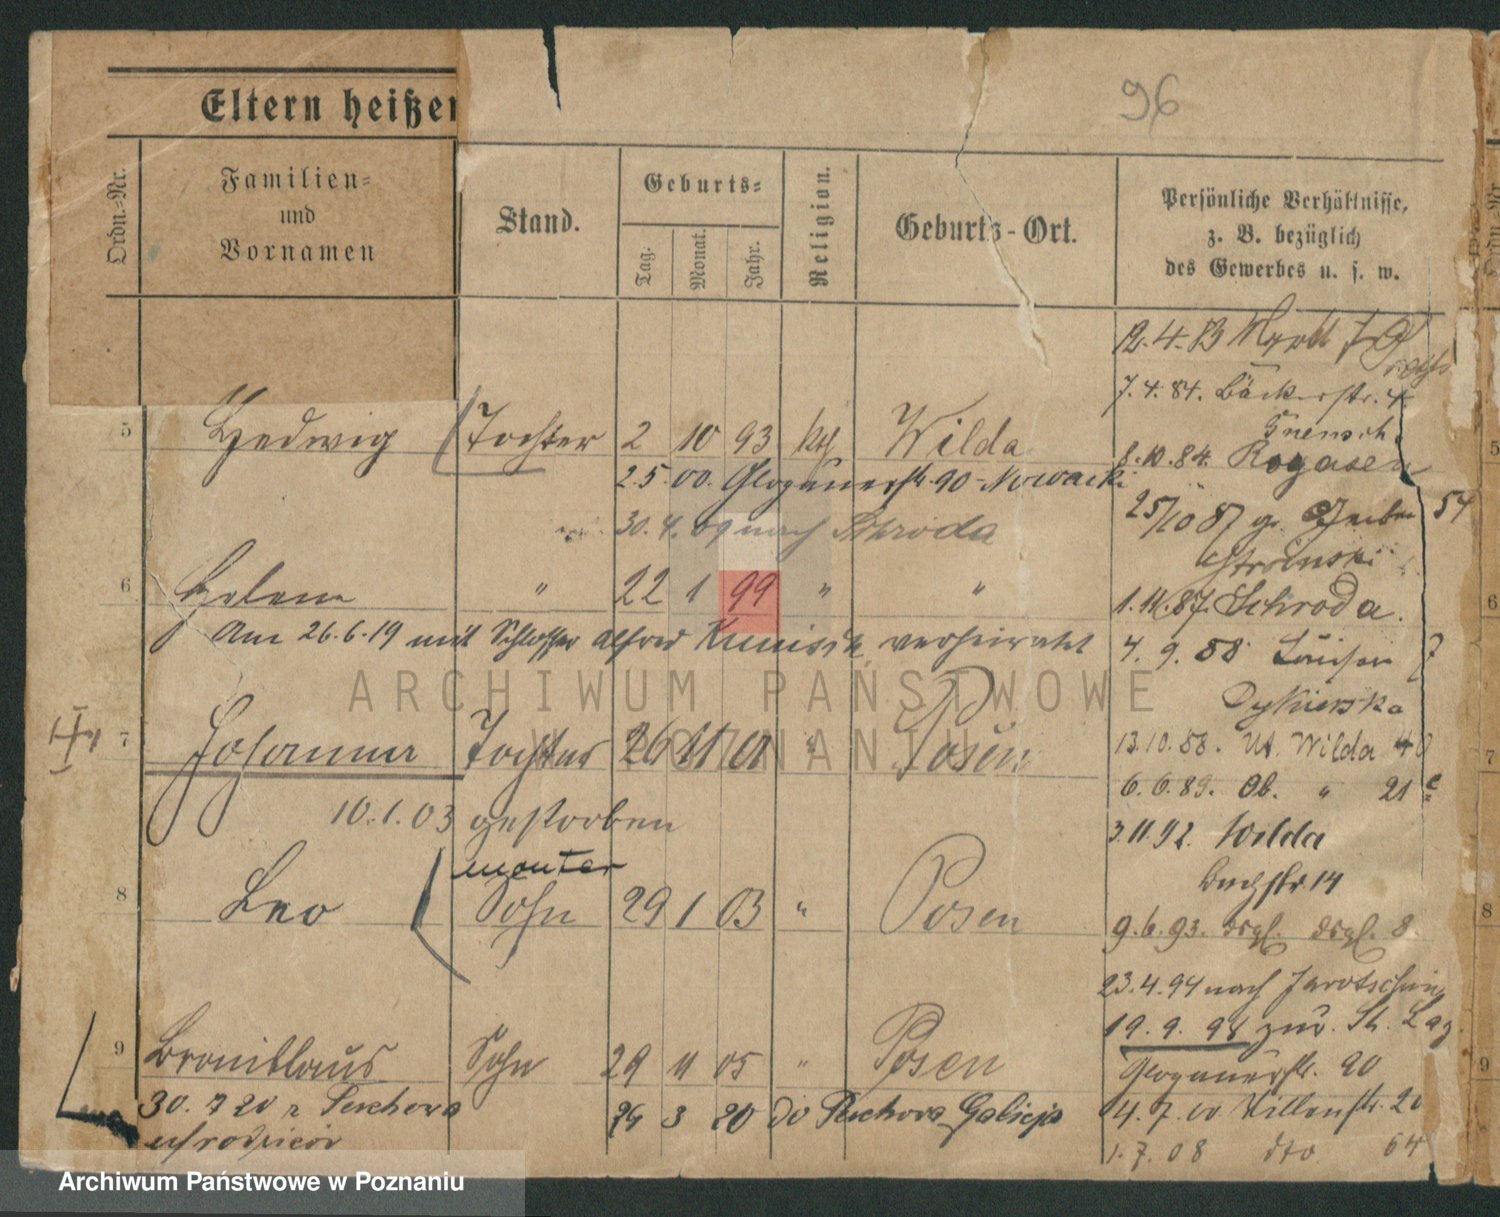 96
Eltern heißen
Ordn.-Nr.
Familien-
und
Vornamen
Stand.
Geburts-
Tag.
Monat.
Jahr.
Religion.
Geburts-Ort.
Persönliche Verhältnisse,
z. B. bezüglich
des Gewerbes u. s. w.
12.4.83
7.4.84. Bäckerstr. 4
5 Hedwig Tochter 2 10 93 kth Wilda
8.10.84. Rogasen
25.5.00. Glogauerstr. 90 - Nowacki
25/10 87 gr. Gerber 54
30.4.09 nach Schroda
Stroinski
6 Helene " 22 1 99 " "
1.11.87. Schroda.
Am 26.6.19 mit Schlosser Alfred verheiratet
4. 9. 88 7
ARCHIWUM PAŃSTWOWE
W POZNANIU
7 Johanna Tochter 26 11 01 " Posen
13.10.88. Ut. Wilda 40
6.6.89. Ob. " 21
10.1.03 gestorben
3.11.92. Wilda
monter
Buchstr. 14
8 Leo Sohn 29 1 03 " Posen
9.6.93. dsgl. dsgl. 8.
23.4.94 nach Jarotschin
19.9.98 zur. St. Laz.
9 Bronislaus Sohn 29 11 05 " Posen
Glogauerstr. 90
30. 7 20 z
24 3 20 do Galicja
4.7.00 20
1.7.08 dto 64
Archiwum Państwowe w Poznaniu